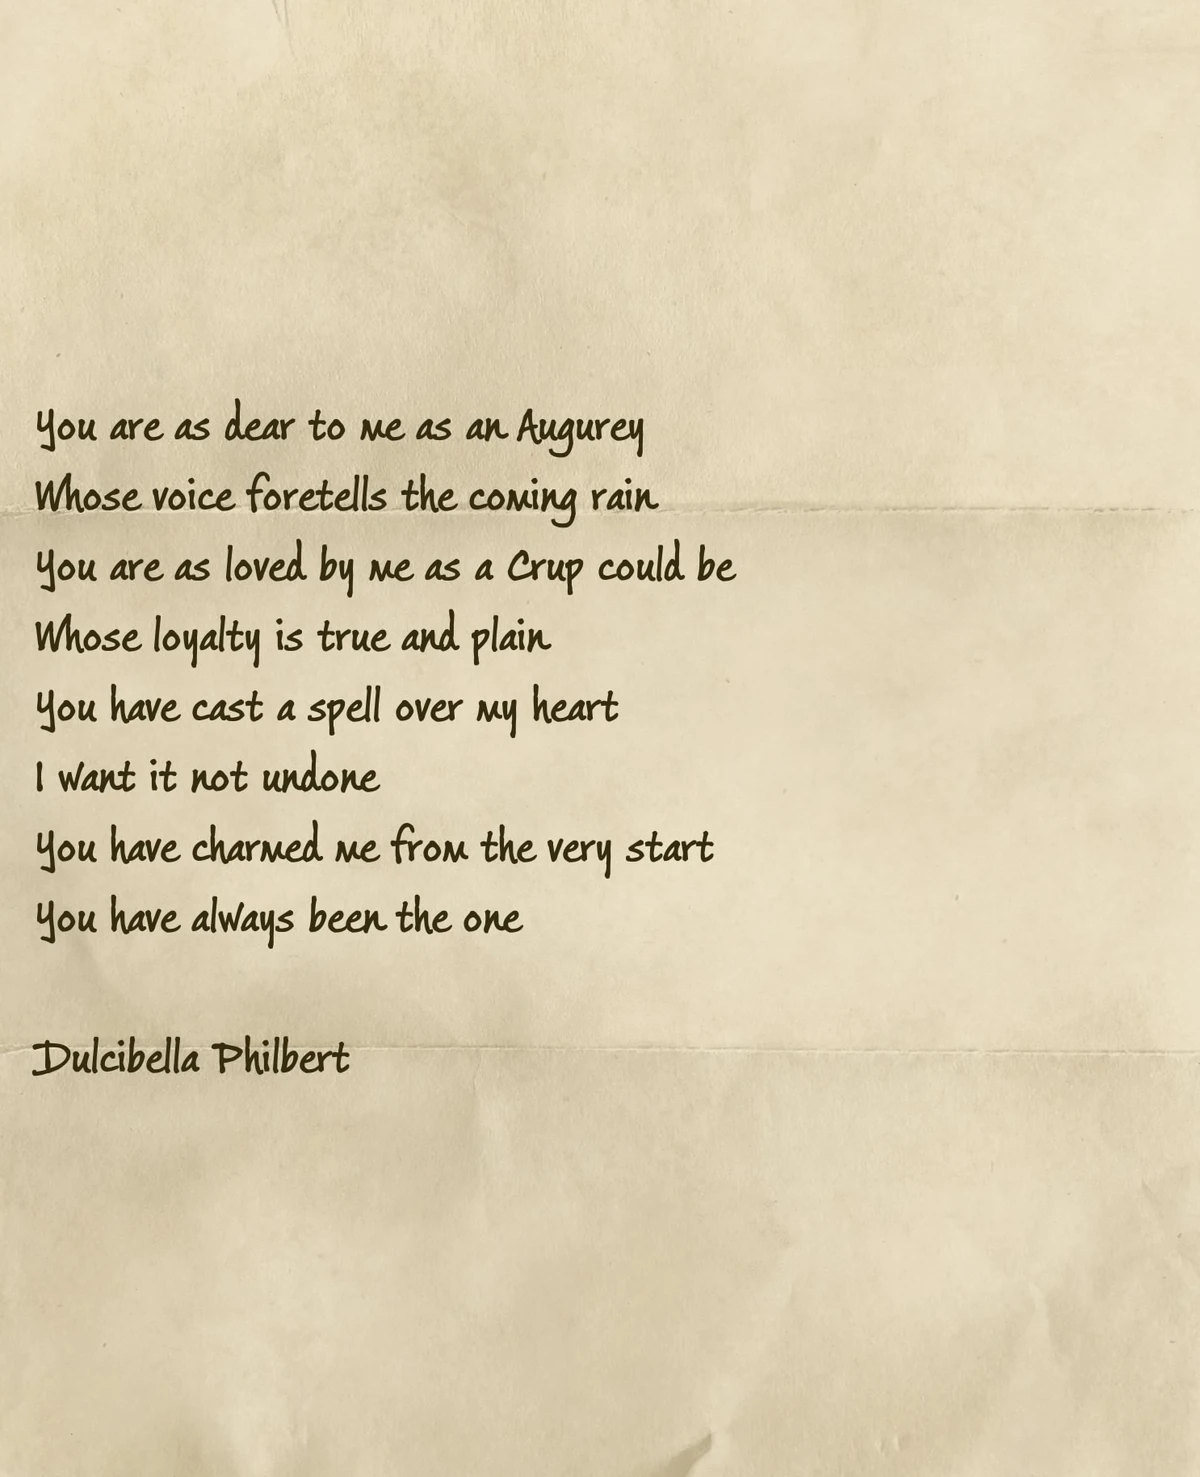 You are as dear to me as an Augurey
Whose voice foretells the coming rain
You are as loved by me as a Crup could be
Whose loyalty is true and plain
You have cast a spell over my heart
I want it not undone
You have charmed me from the very start
You have always been the one
Dulcibella Philbert